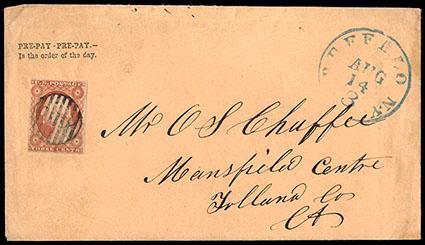 PRE-PAY - PRE-PAY.—
Is the order of the day.
U.S. POSTAGE
THREE CENTS
BUFFALO N.Y.
AUG
14
Mr O S Chaffee
Mansfield Centre
Tolland Co
Ct